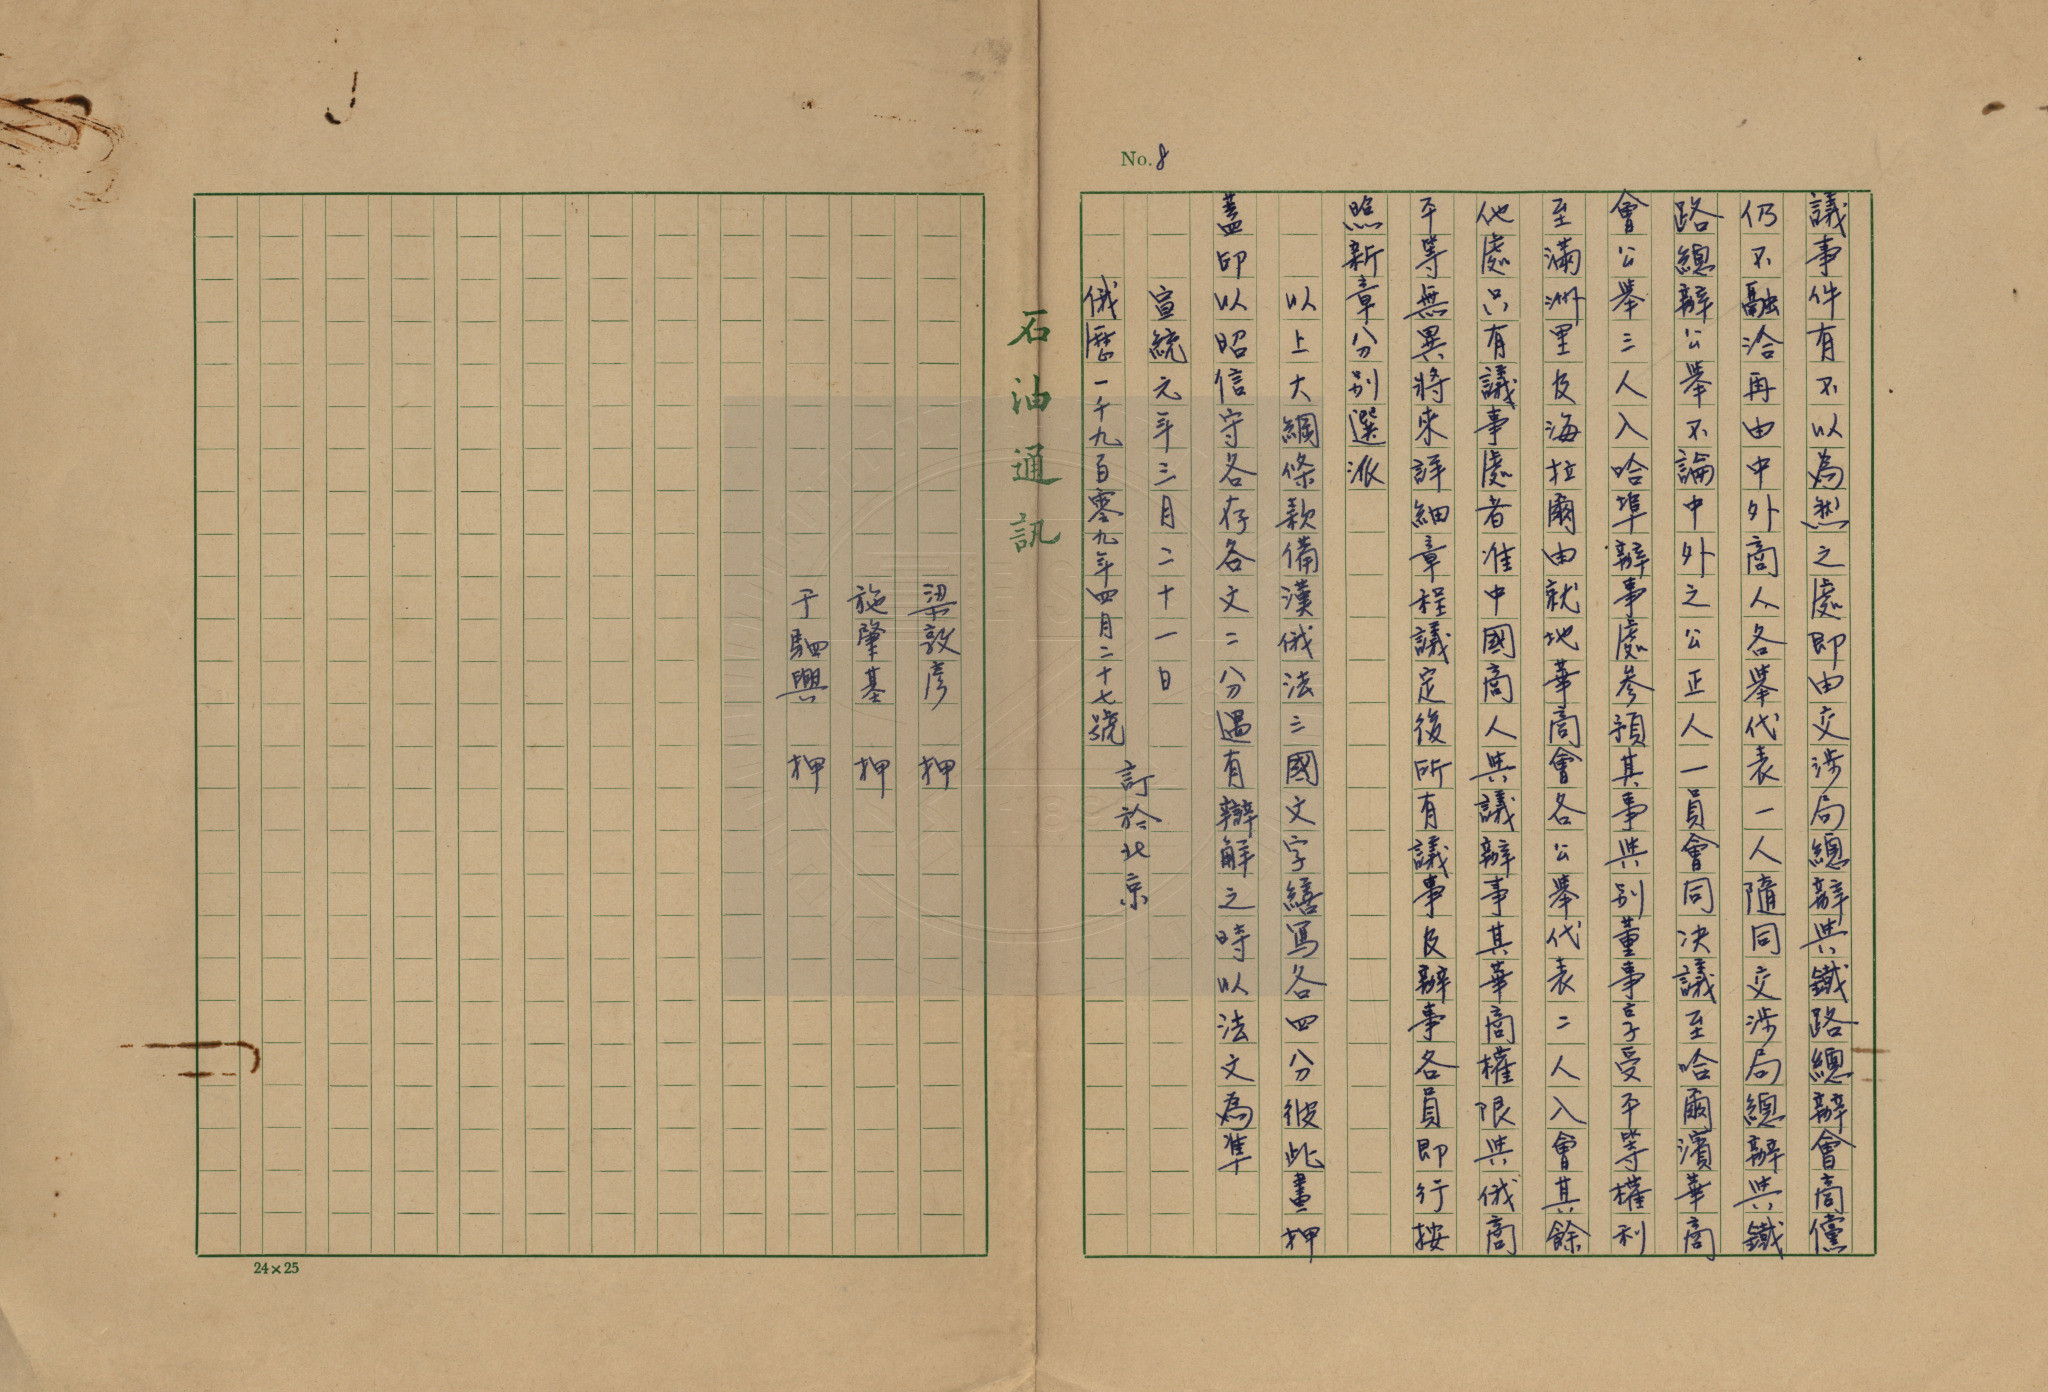 No. 8
議事件有不以為然之處即由交涉局總辦與鐵路總辦會商儻
仍不融洽再由中外商人各舉代表一人隨同交涉局總辦與鐵
路總辦公舉不論中外之公正人一員會同決議至哈爾濱華商
會公舉三人入哈埠辦事處參預其事與別董事享受平等權利
至滿洲里及海拉爾由就地華商會各公舉代表二人入會其餘
他處只有議事處者准中國商人與議辦事其華商權限與俄商
平等無異將來詳細章程議定後所有議事及辦事各員即行按
照新章分別選派
以上大綱條款備漢俄法三國文字繕寫各四分彼此畫押
蓋印以昭信守各存各文二分遇有辯解之時以法文為準
宣統元年三月二十一日
俄歷一千九百零九年四月二十七號
訂於北京
石油通訊
梁敦彥 押
施肇基 押
于駟興 押
24×25